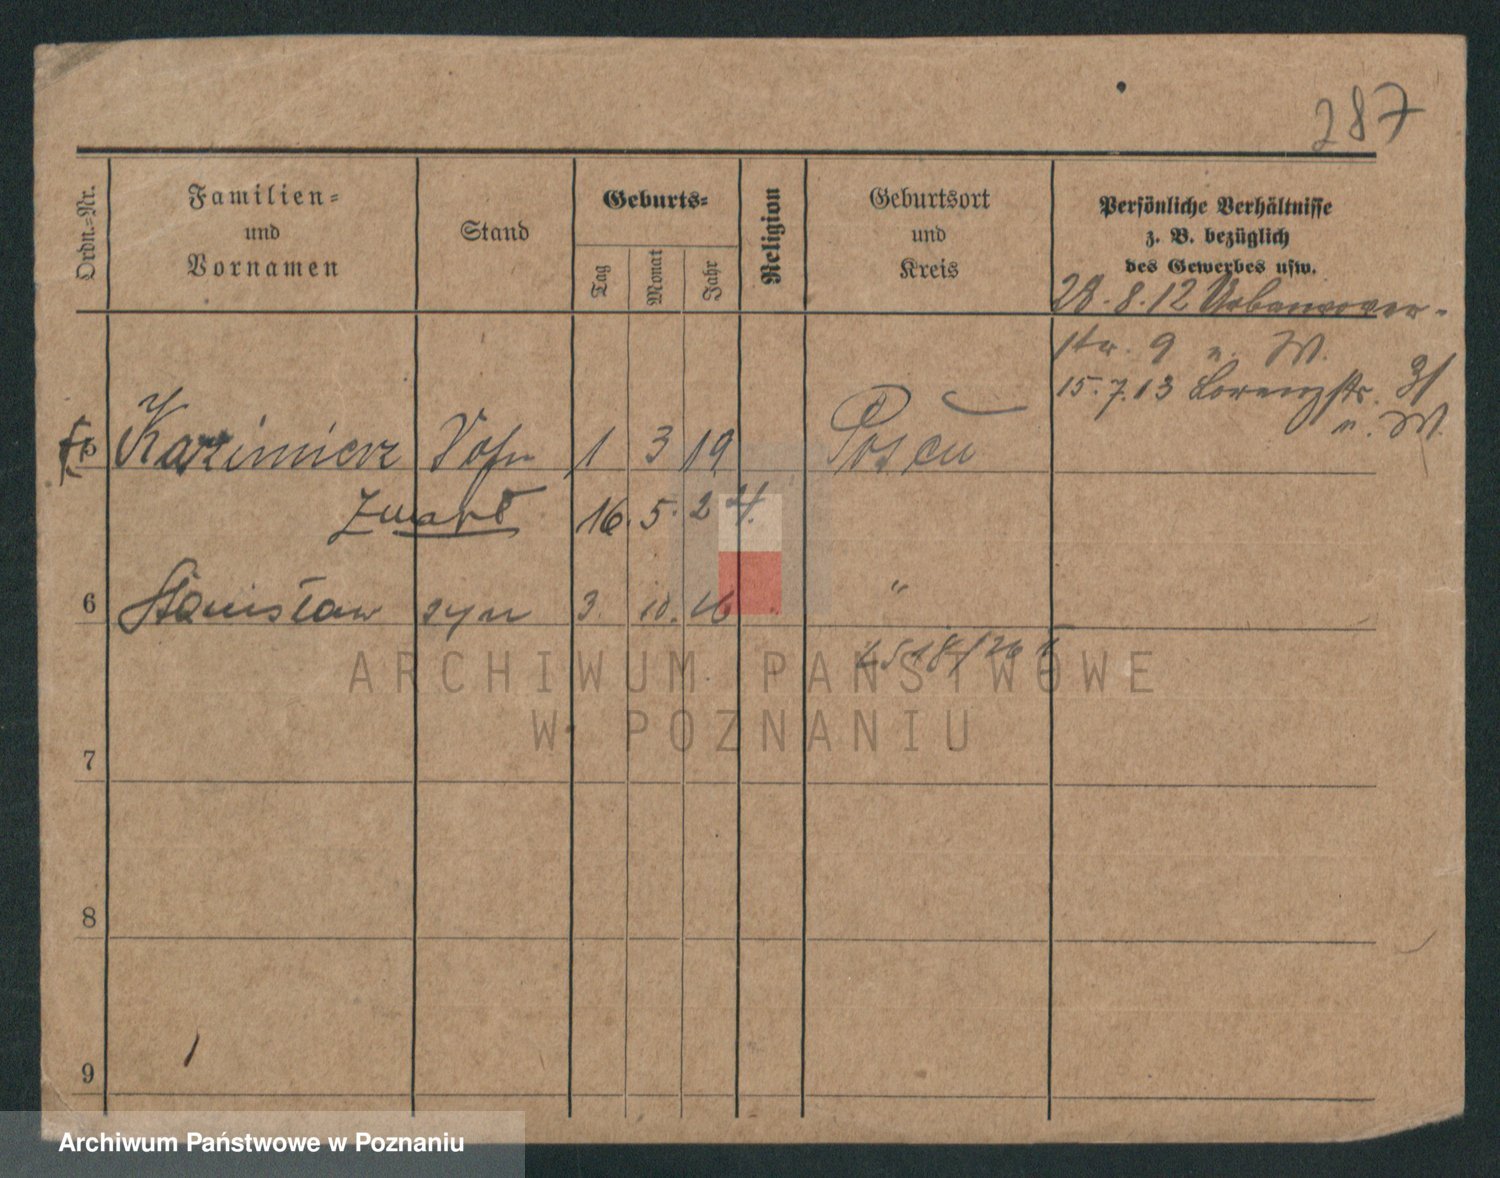 287
Ordn.-Nr.
Familien-
und
Vornamen
Stand
Geburts-
Tag
Monat
Jahr
Religion
Geburtsort
und
Kreis
Persönliche Verhältnisse
z. B. bezüglich
des Gewerbes usw.
28. 8. 12
str. 9 n. W.
15. 7. 13 Lorenzstr. 31
n. W.
5 Kazimierz Sohn 1 3 19 Posen
Zmarł 16. 5. 24.
6 Stanisław syn 3. 10. 26 "
7
8
9
ARCHIWUM PAŃSTWOWE
W POZNANIU
Archiwum Państwowe w Poznaniu